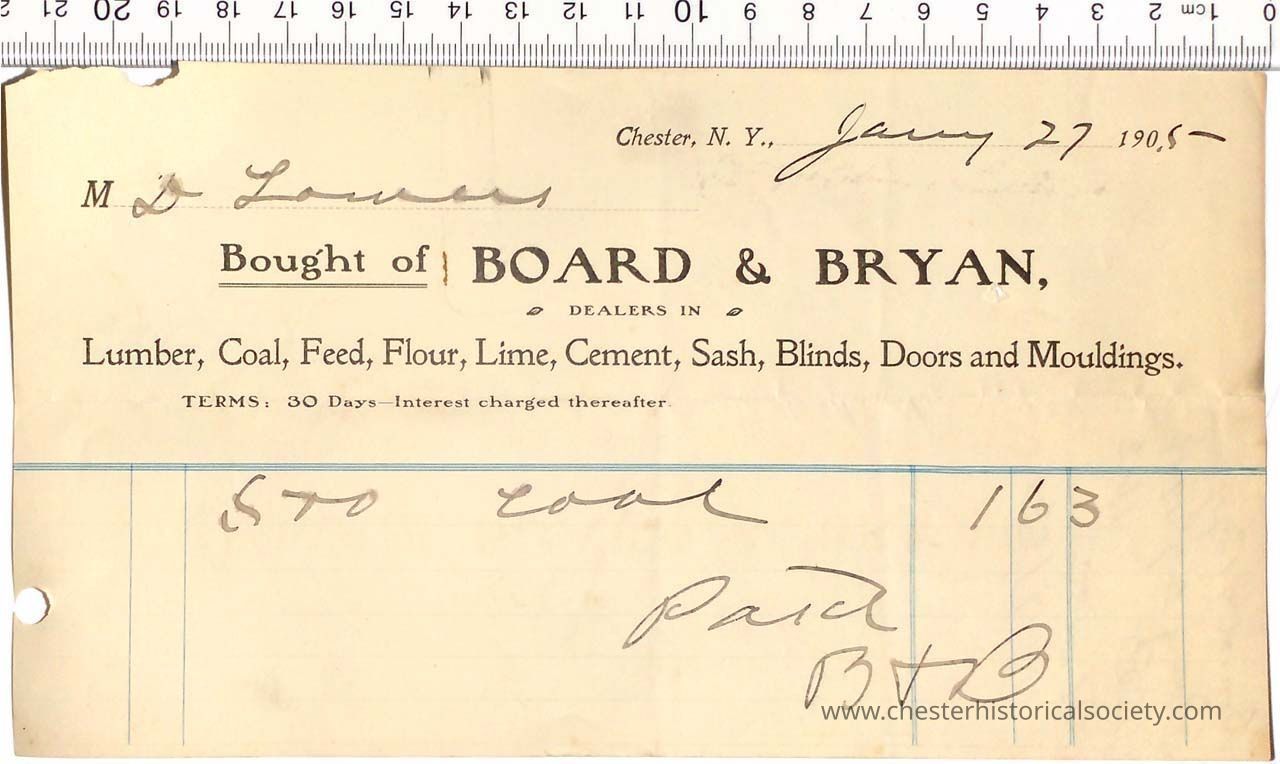 0 1cm 2 3 4 5 6 7 8 9 10 11 12 13 14 15 16 17 18 19 20 21 2
Chester, N. Y., Jany 27 1905
M D Lowers
Bought of BOARD & BRYAN,
DEALERS IN
Lumber, Coal, Feed, Flour, Lime, Cement, Sash, Blinds, Doors and Mouldings.
TERMS: 30 Days—Interest charged thereafter.
570 coal 163
Paid
B + B
www.chesterhistoricalsociety.com